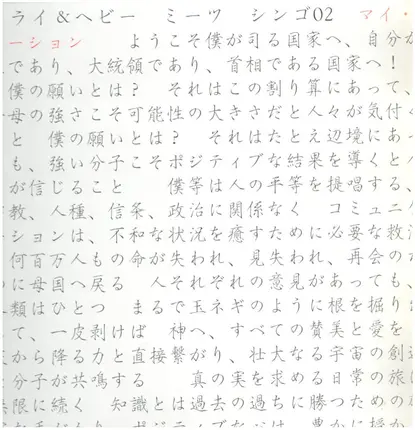 ライ＆ヘビー　ミーツ　シンゴ02　マイ・
ーション　　ようこそ僕が司る国家へ、自分が
であり、大統領であり、首相である国家へ！
僕の願いとは？　それはこの割り算にあって、
母の強さこそ可能性の大きさだと人々が気付く
と　僕の願いとは？　それはたとえ辺境にあっ
も、強い分子こそポジティブな結果を導くと人
が信じること　　僕等は人の平等を提唱する、
教、人種、信条、政治に関係なく　コミュニケ
ションは、不和な状況を癒すために必要な救済
何百万人もの命が失われ、見失われ、再会のた
に母国へ戻る　人それぞれの意見があっても、
類はひとつ　まるで玉ネギのように根を掘り
て、一皮剥けば　神へ、すべての賛美と愛を
から降る力と直接繋がり、壮大なる宇宙の創造
分子が共鳴する　　真の実を求める日常の旅は
限に続く　知識とは過去の過ちに勝つための